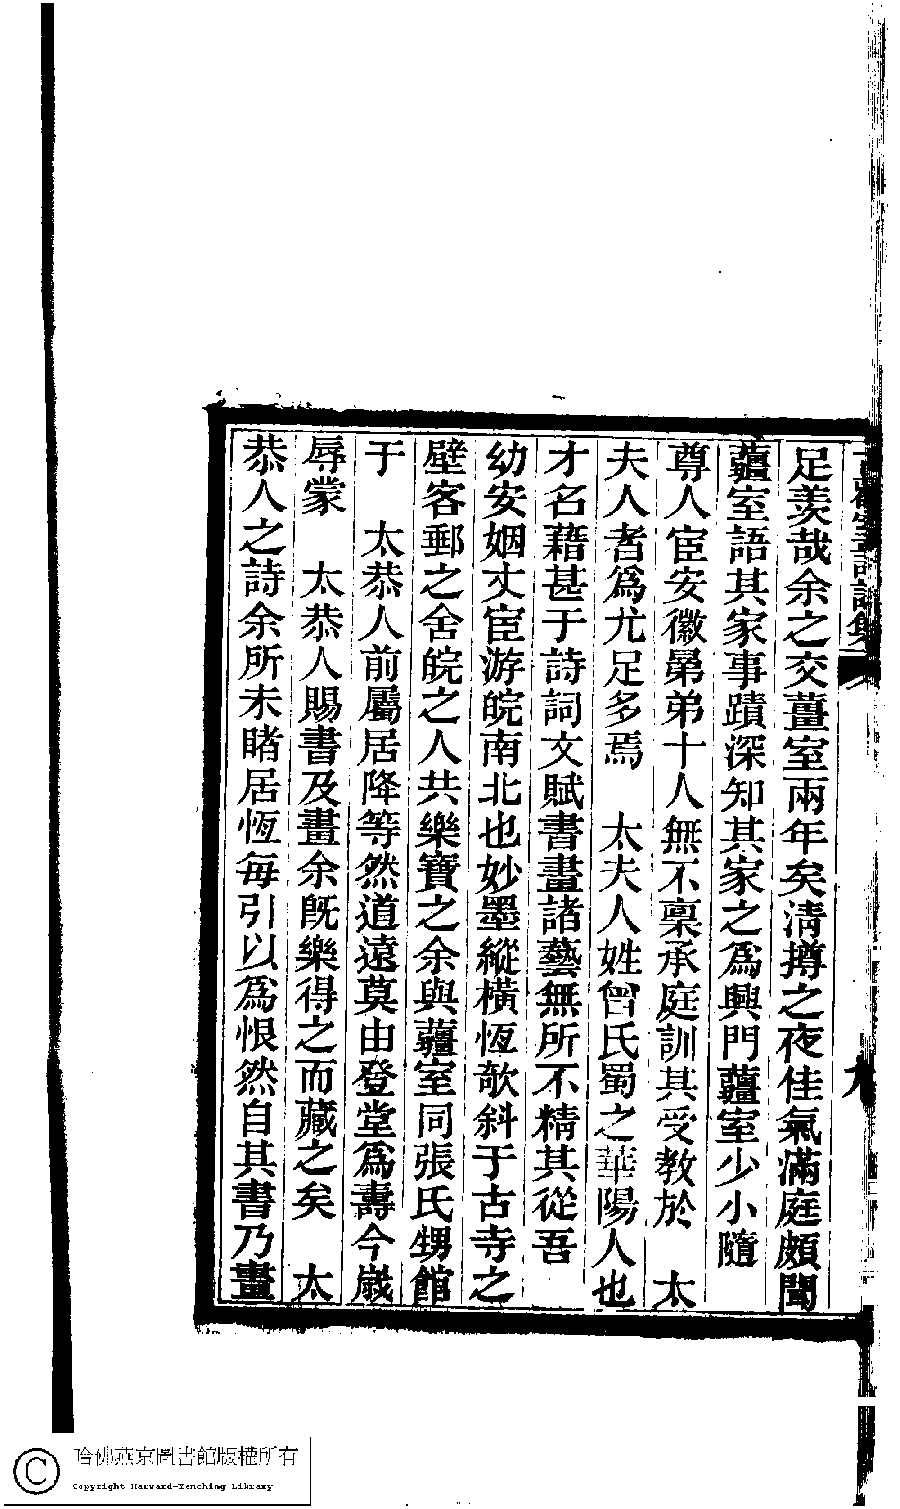 足羨哉余之交薑室兩年矣清撙之夜佳氣滿庭頗聞
蘁室語其家事蹟深知其家之爲興門蘁室少小隨
尊人宦安徽羣弟十人無不稟承庭訓其受教於　太
夫人者爲尤足多焉　太夫人姓曾氏蜀之華陽人也
才名藉甚于詩詞文賦書畫諸藝無所不精其從吾
幼安姻丈宦游皖南北也妙墨縱橫恆欹斜于古寺之
壁客郵之舍皖之人共樂寶之余與蘁室同張氏甥館
于　太恭人前屬居降等然道遠莫由登堂爲壽今歲
辱蒙　太恭人賜書及畫余既樂得之而藏之矣　太
恭人之詩余所未睹居恆每引以爲恨然自其書乃畫
九
哈佛燕京圖書館版權所有
Copyright Harvard-Yenching Library